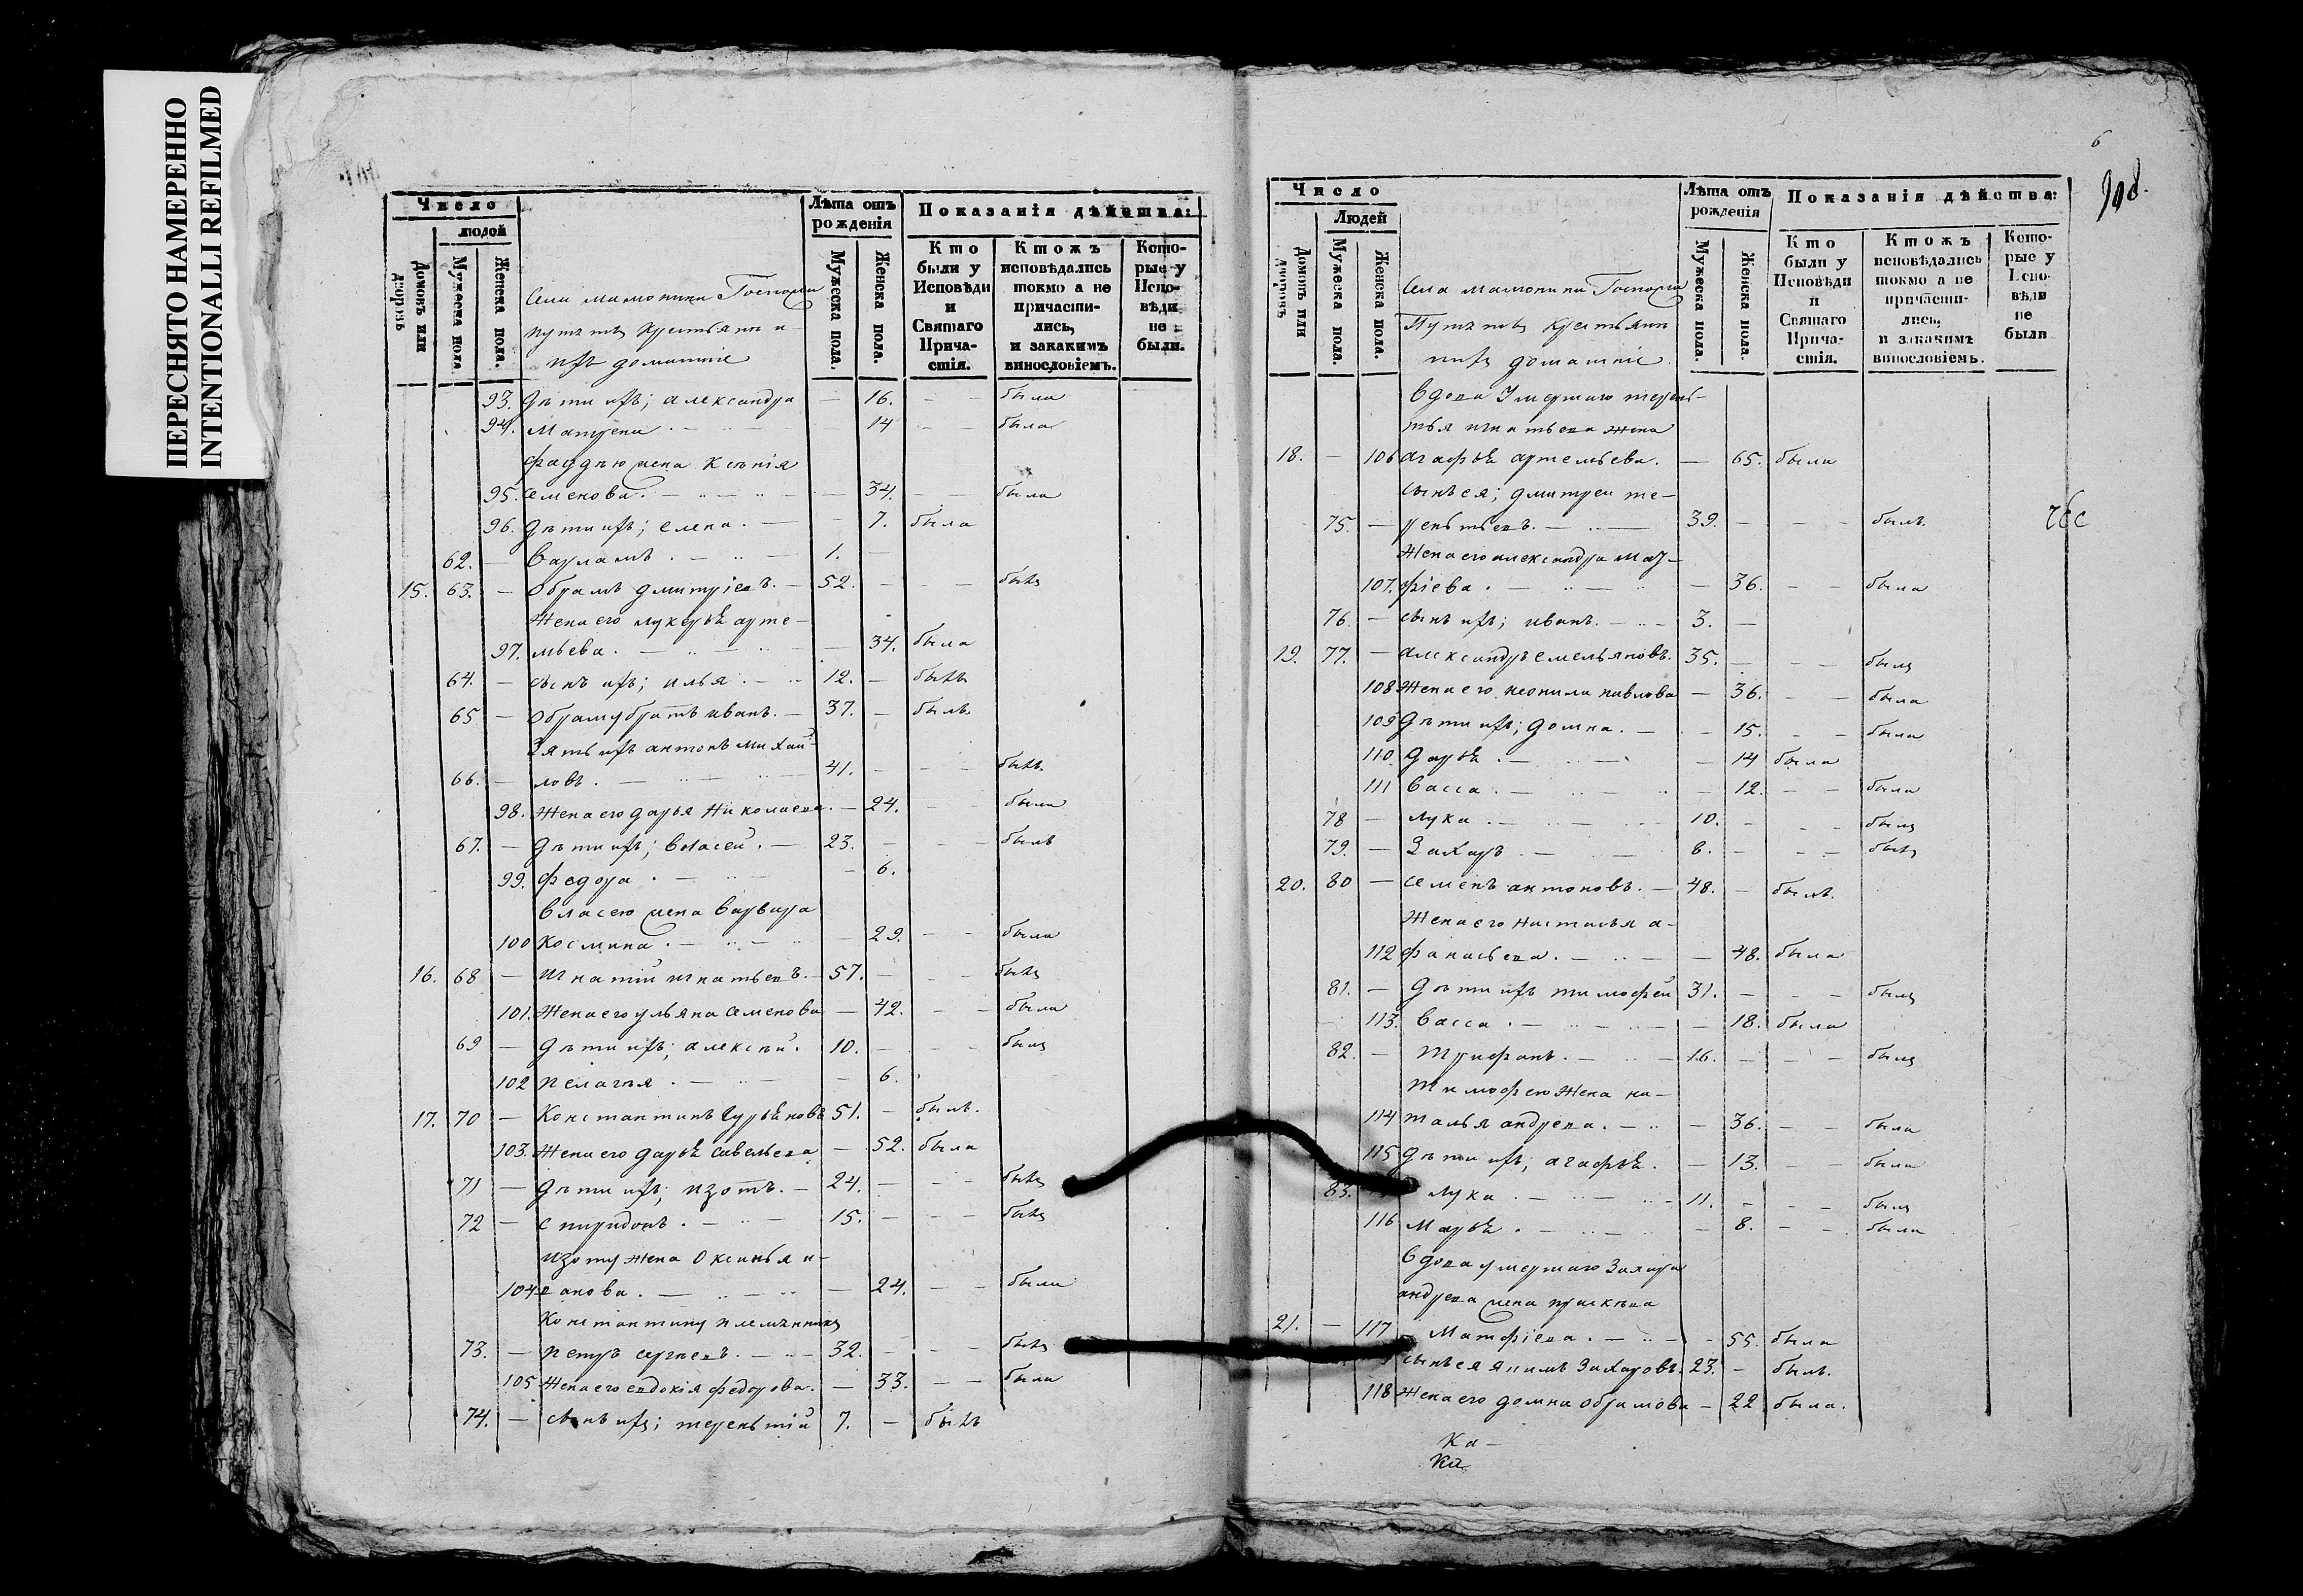 ПЕРЕСНЯТО НАМЕРЕННО
INTENTIONALLI REFILMED
Число
людей
Домовъ или дворовъ
Мужеска пола.
Женска пола.
Села Мамонина Господи
крестьянъ и
ихъ домашние
Лѣта отъ рожденія
Мужеска пола.
Женска пола.
Показанія дѣйства:
Кто были у Исповѣди и Святаго Прича-стія.
Ктожъ исповѣдались токмо а не причасти-лись, и закакимъ винословіемъ.
Кото-рые у Испо-вѣди не были.
93. Дѣти ихъ; александра — 16. — — была
94. Матрена — 14 — была
фаддѣю жена Ксенія
95. семенова. — 34. — — была
96. дѣти ихъ; елена. — 7. была
62. — варламъ . — 1. —
15. 63. — Обрамъ дмитріевъ. — 52. — — — былъ
Жена его лукерья арте-
97. мьева. — 34. была
64. — сынъ ихъ; илья . — 12. — былъ
65 — Обраму братъ иванъ. — 37. — былъ
Зять ихъ антонъ михай-
66. — ловъ . — 41. — — — былъ.
98. Жена его дарья Николаева. — 24. — была
67. — дѣти ихъ; власей . — 23. — — — былъ
99. федора . — 6.
власею жена варвара
100 космина . — 29. — — была
16. 68 — игнатій игнатьевъ. — 57. — — — былъ
101. Жена его ульяна семенова — 42. — — была
69 — дѣти ихъ; алексѣй. 10. — — — былъ
102 пелагея . — 6.
17. 70 — Константинъ Гурьяновъ 51. — былъ.
103. Жена его дарья савельева — 52. была
71 — дѣти ихъ; изотъ. — 24. — — — былъ
72 — спиридонъ . — 15. — — — былъ
изоту жена Оксинья и-
104 ванова . — 24. — — была
Константину племянникъ
73. — петръ сергеевъ. — 32. — — — былъ
105 Жена его евдокія федорова. — 33. — — была
74. — сынъ ихъ; терентій 7. — былъ
6
908.
Число
Людей
Домовъ или дворовъ
Мужеска пола.
Женска пола.
Села мамонина Господи
крестьянъ
ихъ домашніе
Лѣта отъ рожденія
Мужеска пола.
Женска пола.
Показанія дѣйства:
Кто были у Исповѣди и Святаго Прича-стія.
Ктожъ исповѣдались токмо а не причасти-лись, и закакимъ винословіемъ.
Кото-рые у Испо-вѣди не были
вдова Умершаго терен-
тья игнатьева жена
18. — 106 агафья артемьева. — 65. была
сынъ ея; дмитреи те-
75. — рентьевъ. — 39. — — — былъ.
Жена его александра мар-
107. фіева . — 36. — — была
76. — сынъ ихъ; иванъ. — 3. —
19. 77. — александръ емельяновъ. 35. — — — былъ
108 Жена его неонила павлова — 36. — — была
109 дѣти ихъ; домна. — 15. — — была
110 дарья . — 14 была
111 васса . — 12. — — была
78 — лука . — 10. — — — былъ
79. — Захаръ . — 8. — — — былъ
20. 80 — семенъ антоновъ. — 48. — былъ.
Жена его Наталья а-
112 фанасьева . — 48. была
81. — дѣти ихъ тимофей 31. — — — былъ
113. васса . — 18. была
82. — трифанъ . — 16. — — — былъ
Тимофею Жена на-
114 талья андрева. — 36. — — была
115 дѣти ихъ; агафья. — 13. — была
83. лука . — 11. — — — былъ
116 марья . — 8. — — была
вдова умершаго Захара
андрева жена прасковья
21. — 117 Матфіева . — 55. была
сынъ ея якимъ Захаровъ. 23. — былъ.
118 Жена его домна обрамова — 22 была.
Ка-
Ка